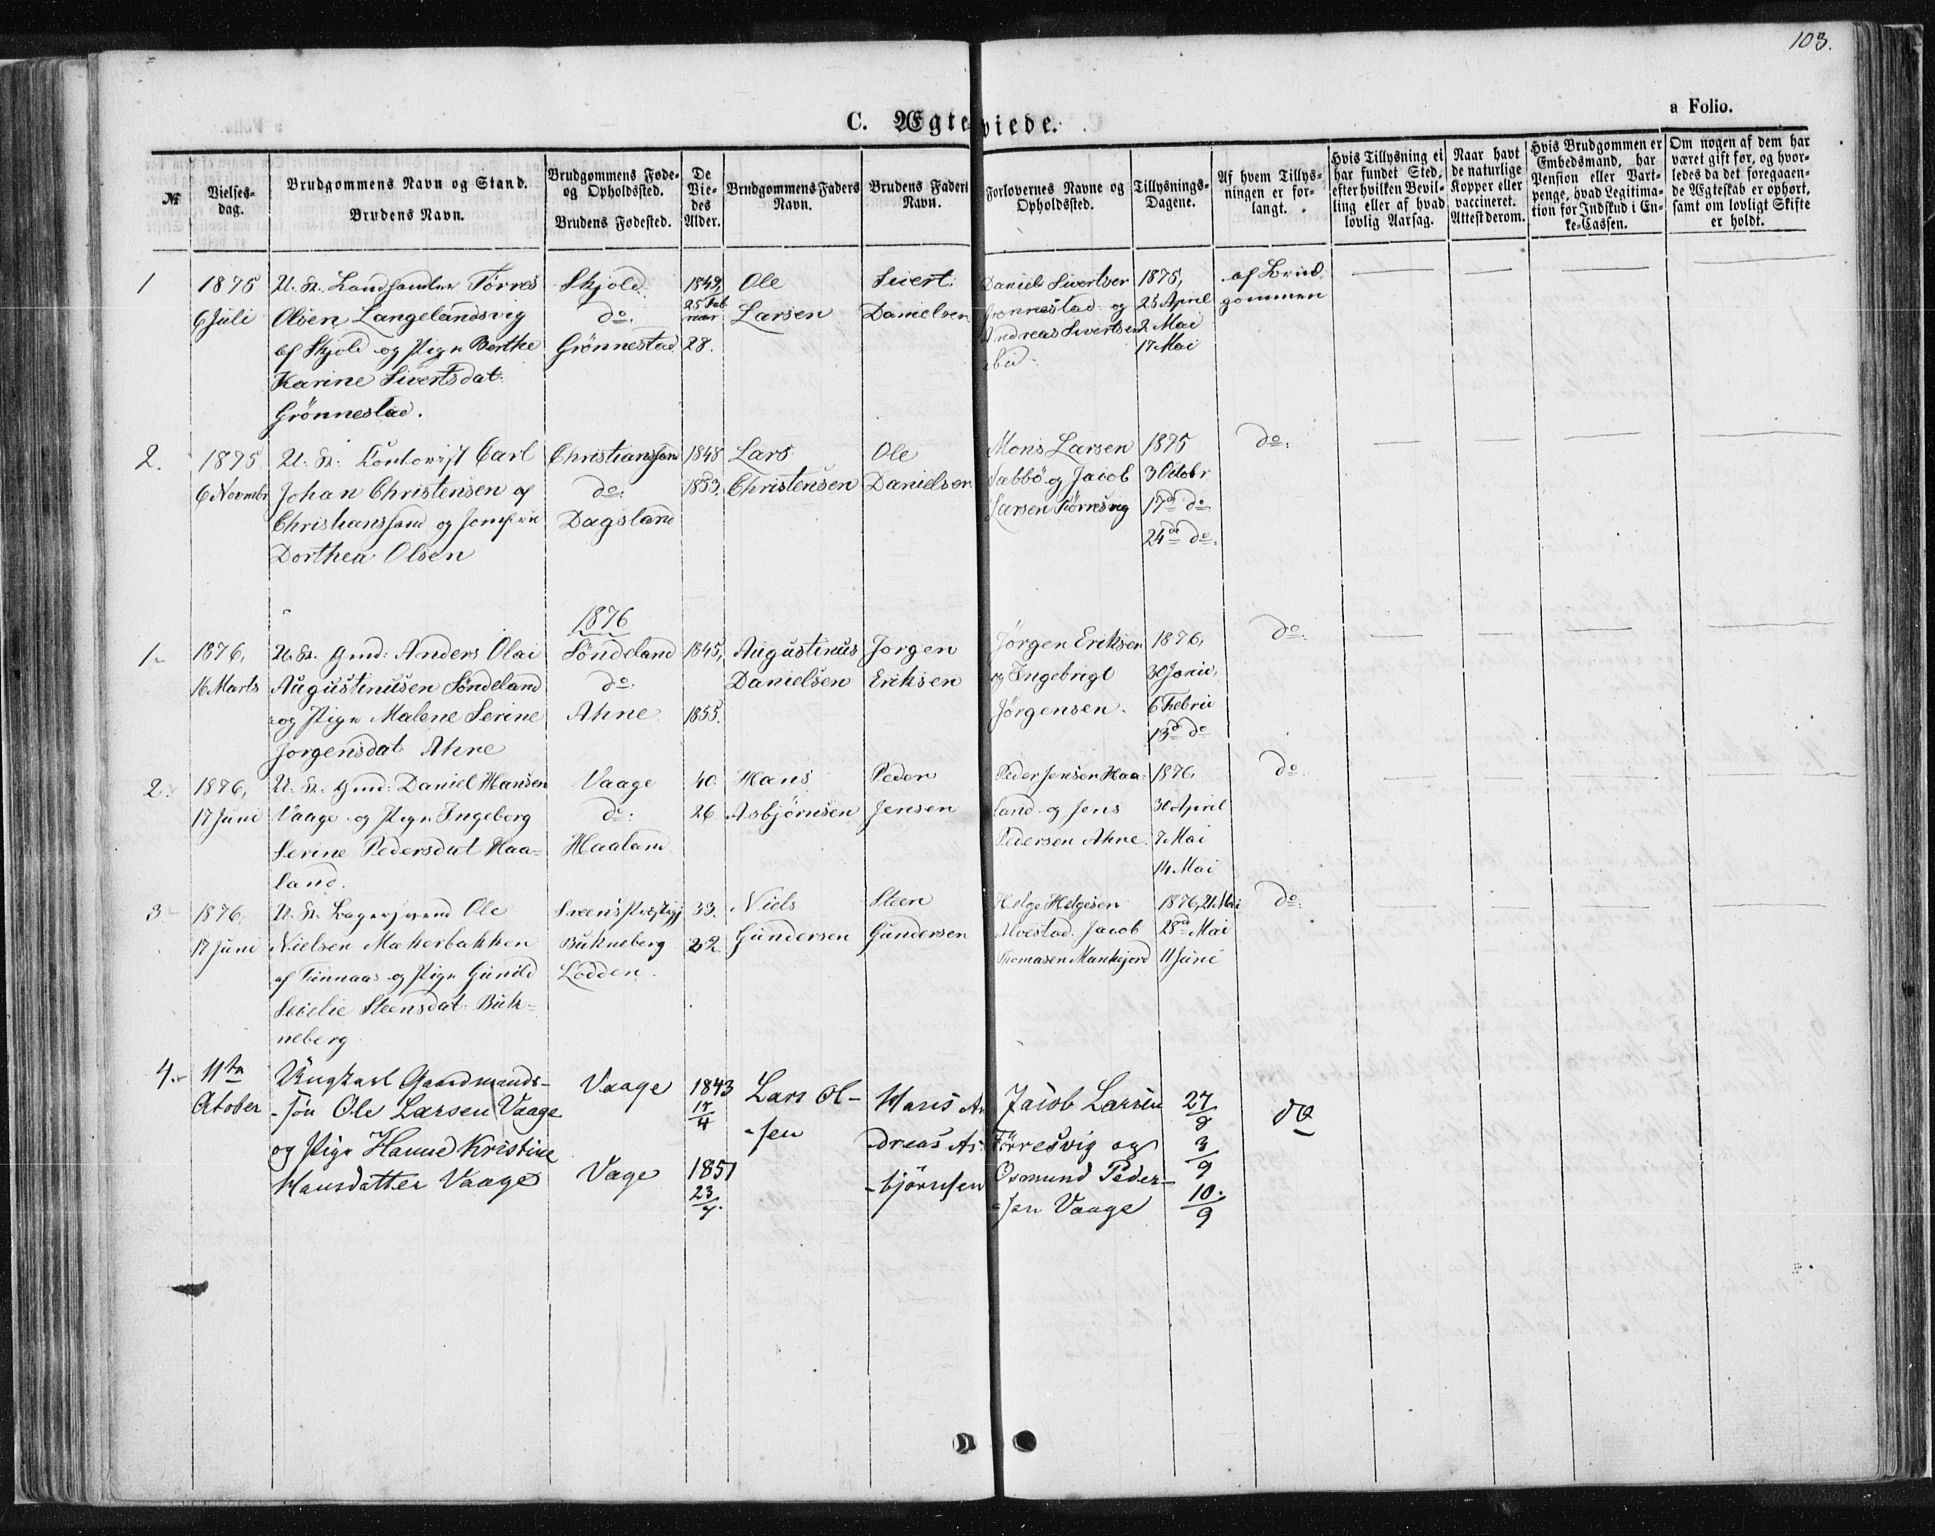 103.
a Folio.
C. Ægteviede.
№
Vielses-
dag.
Brudgommens Navn og Stand.
Brudens Navn.
Brudgommens Føde-
og Opholdssted.
Brudens Fødested.
De
Vie-
des
Alder.
Brudgommens Faders
Navn.
Brudens Faders
Navn.
Forlovernes Navne og
Opholdssted.
Tillysnings-
Dagene.
Af hvem Tillys-
ningen er for-
langt.
Hvis Tillysning ei
har fundet Sted,
efter hvilken Bevil-
ling eller af hvad
lovlig Aarsag.
Naar havt
de naturlige
Kopper eller
vaccineret.
Attest derom.
Hvis Brudgommen er
Embedsmand, har
Pension eller Vart-
penge, hvad Legitima-
tion for Indskud i En-
ke-Cassen.
Om nogen af dem har
været gift før, og hvor-
ledes da det foregaaen-
de Ægteskab er ophørt,
samt om lovligt Skifte
er holdt.
1
1875
6 Juli
U. K. Landhandler Tørres
Olsen Langelandsvig
af Skjold og Pige Berthe
Karine Sivertsdat.
Grönnestad.
Skjold
do.
Grönnestad
1849.
25 Feb
ruar
28.
Ole
Larsen
Sivert
Danielsen
Daniel Sivertsen
Grönnestad og
Andreas Sivertsen
ibid.
1875,
25 April
2 Mai
17 Mai
af Brud
gommen
2.
1875
6 Novmbr
U. K. Kontorist Carl
Johan Christensen af
Christianssand og Jomfru
Dorthea Olsen
Christianssand
do.
Dagsland
1848
1853.
Lars
Christensen
Ole
Danielsen
Mons Larsen
Nabbö og Jacob
Larsen Førresvig
1875
3 Octobr
17de do.
24de do.
do.
1876
1.
1876,
16 Marts
U. K. Gmd: Anders Olai
Augustinusen Söndeland
og Pige Malene Serine
Jorgensdat. Ahne
Söndeland
do.
Ahne
1845,
1855.
Augustinus
Danielsen
Jorgen
Eriksen
Jørgen Eriksen
og Ingebrigt
Jørgensen.
1876,
30 Janu.
6 Febru
13de do
do.
2.
1876,
17 Juni
U. K. Gmd: Daniel Hansen
Vaage og Pige Ingeborg
Serine Pedersdat Haa-
land.
Vaage
do.
Haaland
40.
26
Hans
Asbjørnsen
Peder
Jensen
Peder Jensen Haa-
land og Jens
Pedersen Ahne.
1876,
30 April
7 Mai
14 Mai
do.
3
1876,
17 Juni
U. K. Ole
Nielsen Makerbakken
af Finnaas og Pige Gunild
Steensdat. Buk-
neberg
Bukneberg
Lodden.
33.
22.
Niels
Gundersen
Steen
Gundersen
Helge Helgesen
Alvestad. Jacob
Thomasen Mankejord
1876, 21 Mai
28de Mai
11 Juni
do.
4.
11te
October
Ungkarl Gaardmands-
-søn Ole Larsen Vaage
og Pige Hanne Kristine
Hansdatter Vaage
Vaage
Vage
1843
15/4
1851
23/7.
Lars Ol-
-sen
Hans An
-dreas As-
-bjørnsen
Jacob Larsen
Førresvig og
Osmund Peder-
-sen Vaage
27/8
3/9
10./9
do